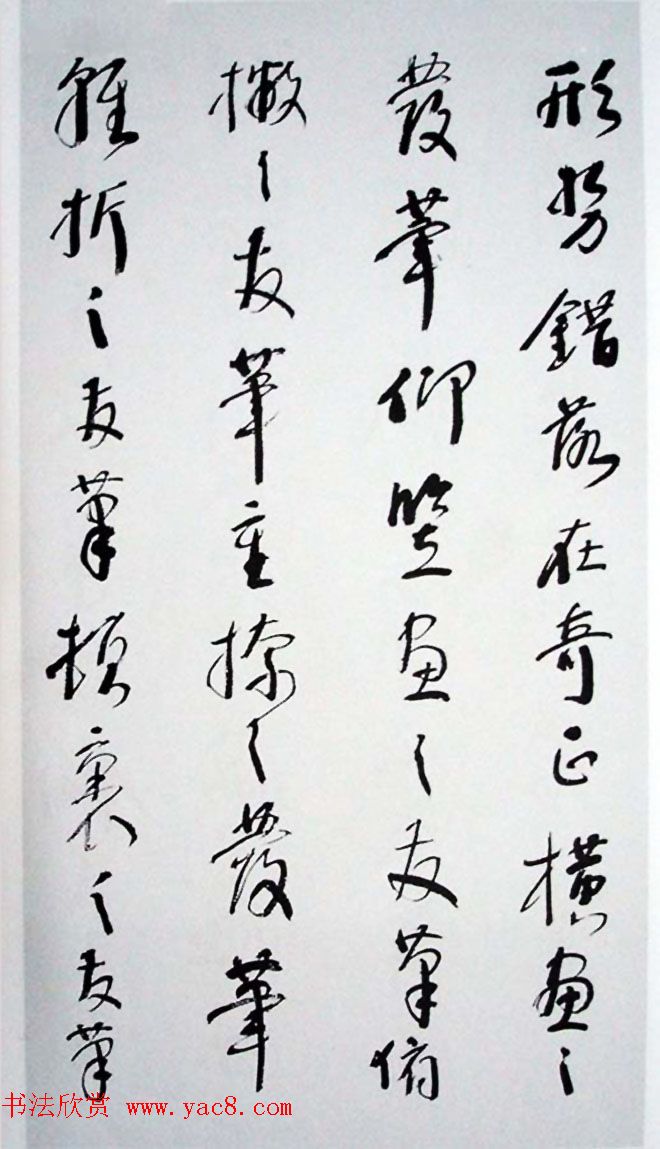 形势错落在奇正横画之
發筆仰竖画之友筆俯
撇之友筆重捺之發筆
輕折之友筆頓裹之友筆
书法欣赏 www.yac8.com